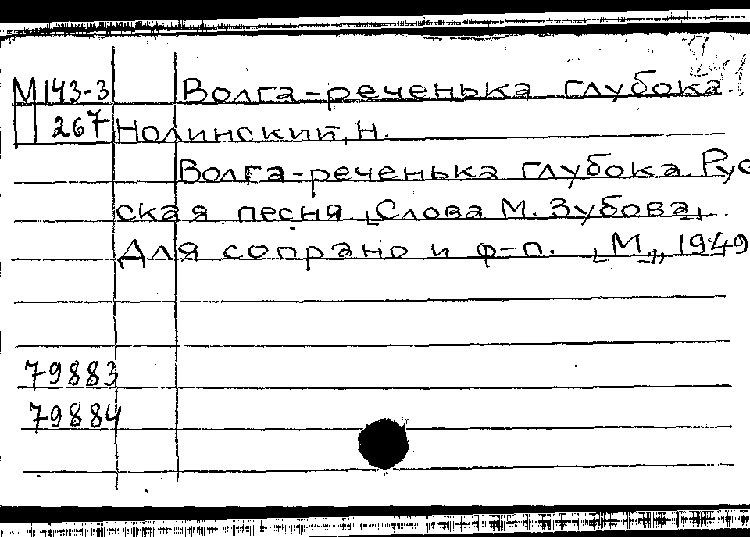 М143-3 Волга-реченька глубока.
267 Нолинский, Н.
Волга-реченька глубока. Рус
ская песня [Слова М. Зубова].
Для сопрано и ф-п. [М.], 1949
79883
79884